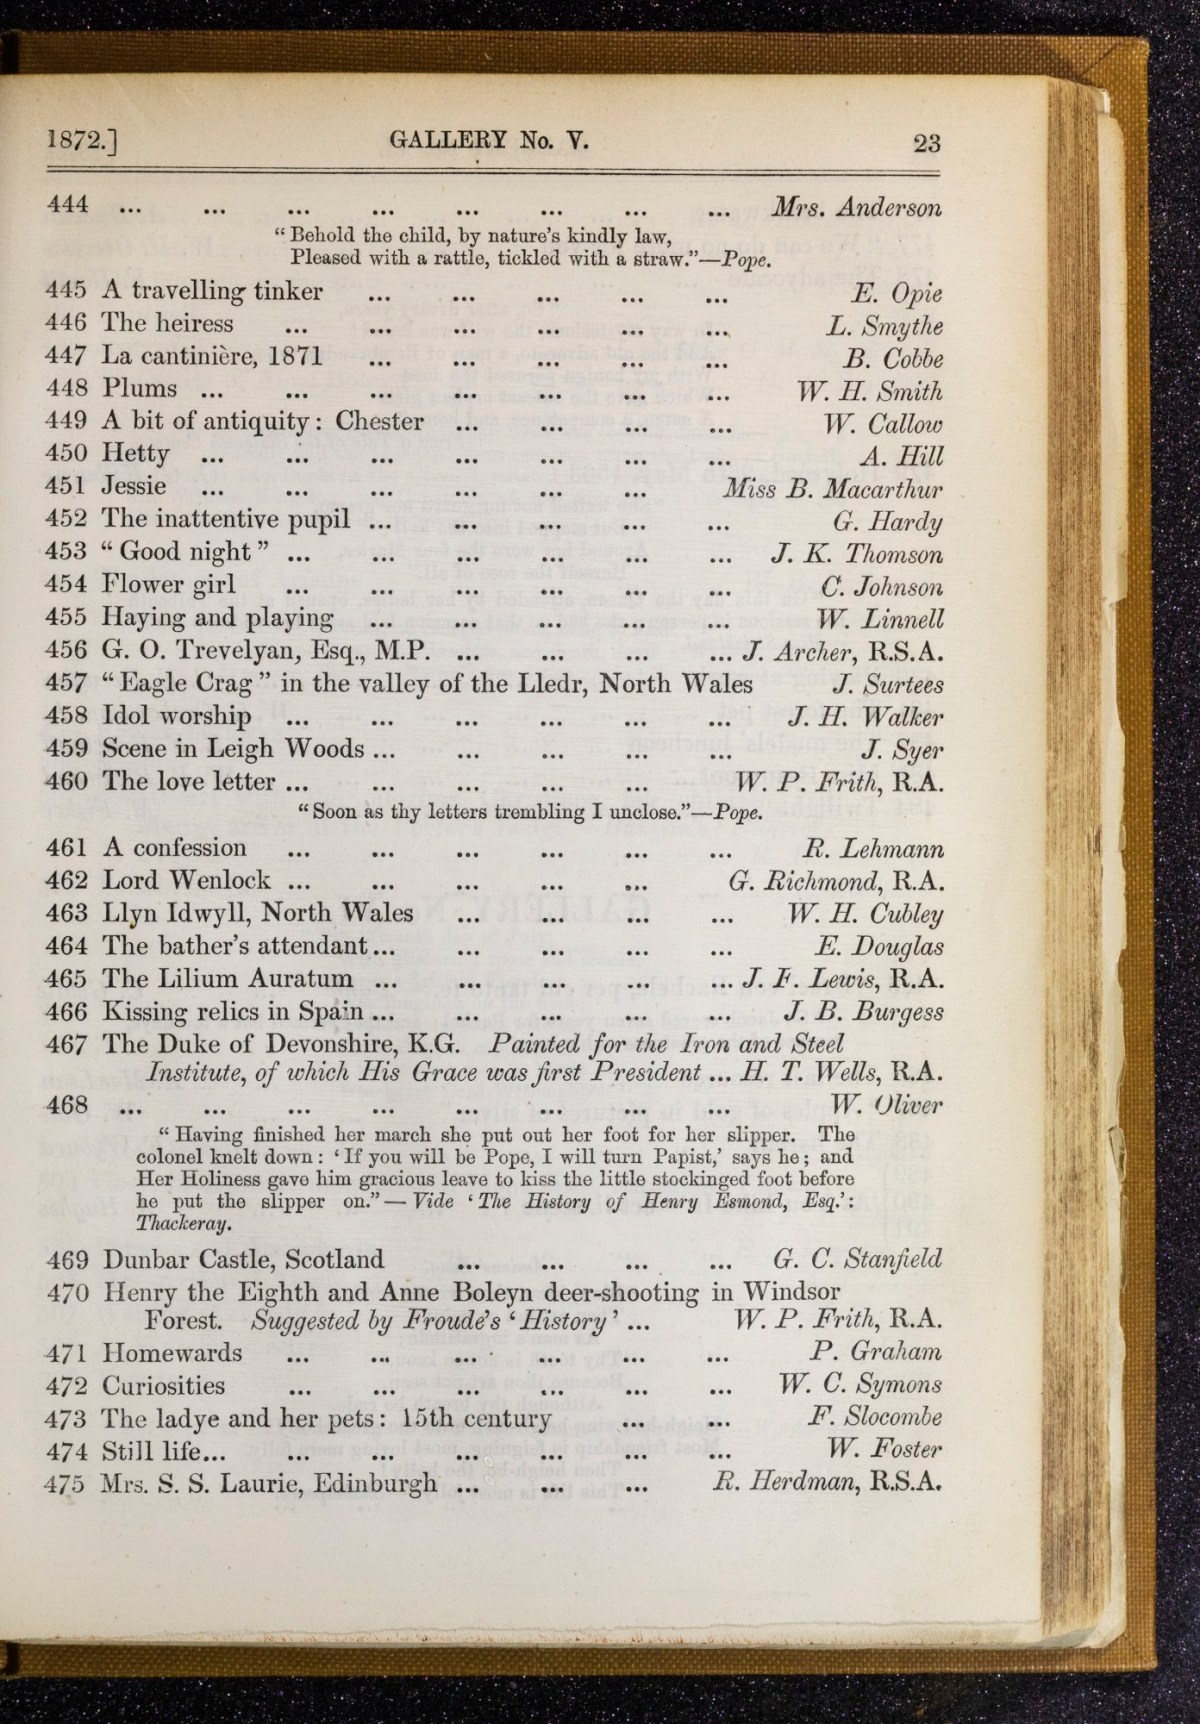 1872.] GALLERY No. V. 23
444 ... ... ... ... ... ... ... ... Mrs. Anderson
“Behold the child, by nature’s kindly law,
Pleased with a rattle, tickled with a straw.”—Pope.
445 A travelling tinker ... ... ... ... ... E. Opie
446 The heiress ... ... ... ... ... ... L. Smythe
447 La cantinière, 1871 ... ... ... ... ... B. Cobbe
448 Plums ... ... ... ... ... ... ... W. H. Smith
449 A bit of antiquity: Chester ... ... ... ... W. Callow
450 Hetty ... ... ... ... ... ... ... A. Hill
451 Jessie ... ... ... ... ... ... Miss B. Macarthur
452 The inattentive pupil ... ... ... ... ... G. Hardy
453 “Good night” ... ... ... ... ... ... J. K. Thomson
454 Flower girl ... ... ... ... ... ... C. Johnson
455 Haying and playing ... ... ... ... ... W. Linnell
456 G. O. Trevelyan, Esq., M.P. ... ... ... ... J. Archer, R.S.A.
457 “Eagle Crag” in the valley of the Lledr, North Wales J. Surtees
458 Idol worship ... ... ... ... ... ... J. H. Walker
459 Scene in Leigh Woods ... ... ... ... ... J. Syer
460 The love letter ... ... ... ... ... W. P. Frith, R.A.
“Soon as thy letters trembling I unclose.”—Pope.
461 A confession ... ... ... ... ... ... R. Lehmann
462 Lord Wenlock ... ... ... ... ... G. Richmond, R.A.
463 Llyn Idwyll, North Wales ... ... ... ... W. H. Cubley
464 The bather’s attendant ... ... ... ... ... E. Douglas
465 The Lilium Auratum ... ... ... ... ... J. F. Lewis, R.A.
466 Kissing relics in Spain ... ... ... ... ... J. B. Burgess
467 The Duke of Devonshire, K.G. Painted for the Iron and Steel
Institute, of which His Grace was first President ... H. T. Wells, R.A.
468 ... ... ... ... ... ... ... ... W. Oliver
“Having finished her march she put out her foot for her slipper. The
colonel knelt down: ‘If you will be Pope, I will turn Papist,’ says he; and
Her Holiness gave him gracious leave to kiss the little stockinged foot before
he put the slipper on.”—Vide ‘The History of Henry Esmond, Esq.’:
Thackeray.
469 Dunbar Castle, Scotland ... ... ... ... G. C. Stanfield
470 Henry the Eighth and Anne Boleyn deer-shooting in Windsor
Forest. Suggested by Froude’s ‘History’ ... W. P. Frith, R.A.
471 Homewards ... ... ... ... ... ... P. Graham
472 Curiosities ... ... ... ... ... ... W. C. Symons
473 The ladye and her pets: 15th century ... ... F. Slocombe
474 Still life... ... ... ... ... ... ... W. Foster
475 Mrs. S. S. Laurie, Edinburgh ... ... ... R. Herdman, R.S.A.